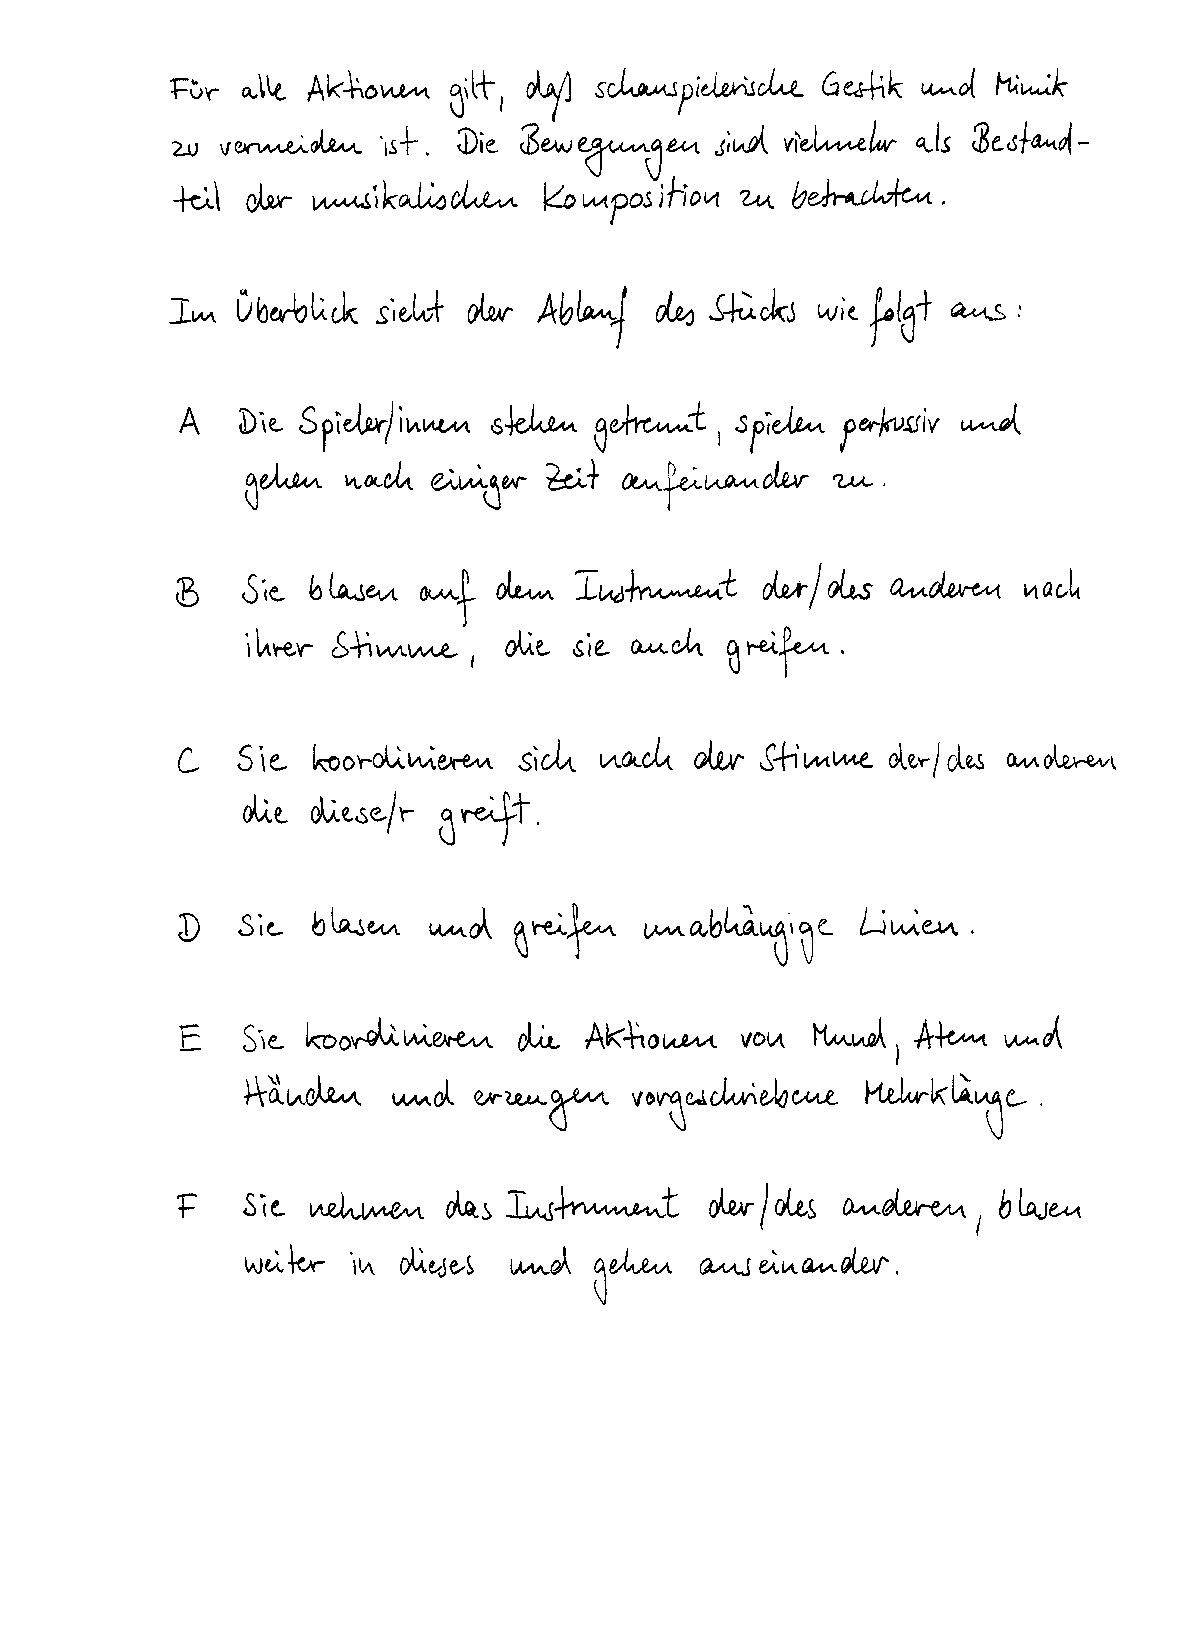 Für alle Aktionen gilt, daß schauspielerische Gestik und Mimik
zu vermeiden ist. Die Bewegungen sind vielmehr als Bestand-
teil der musikalischen Komposition zu betrachten.
Im Überblick sieht der Ablauf des Stücks wie folgt aus:
A Die Spieler/innen stehen getrennt, spielen perkussiv und
gehen nach einiger Zeit aufeinander zu.
B Sie blasen auf dem Instrument der/des anderen nach
ihrer Stimme, die sie auch greifen.
C Sie koordinieren sich nach der Stimme der/des anderen
die diese/r greift.
D Sie blasen und greifen unabhängige Linien.
E Sie koordinieren die Aktionen von Mund, Atem und
Händen und erzeugen vorgeschriebene Mehrklänge.
F Sie nehmen das Instrument der/des anderen, blasen
weiter in dieses und gehen auseinander.